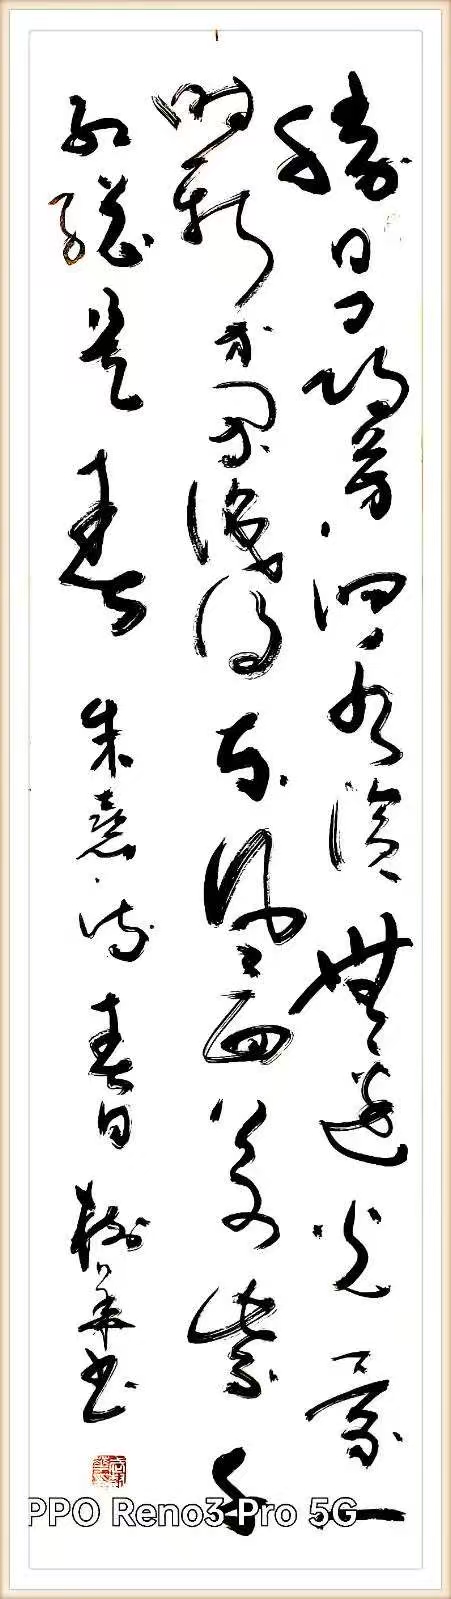 勝日尋芳泗水濱無邊光景一
時新等閒識得東風面萬紫千
紅總是春 朱熹詩 春日 樹華書
PPO Reno3 Pro 5G